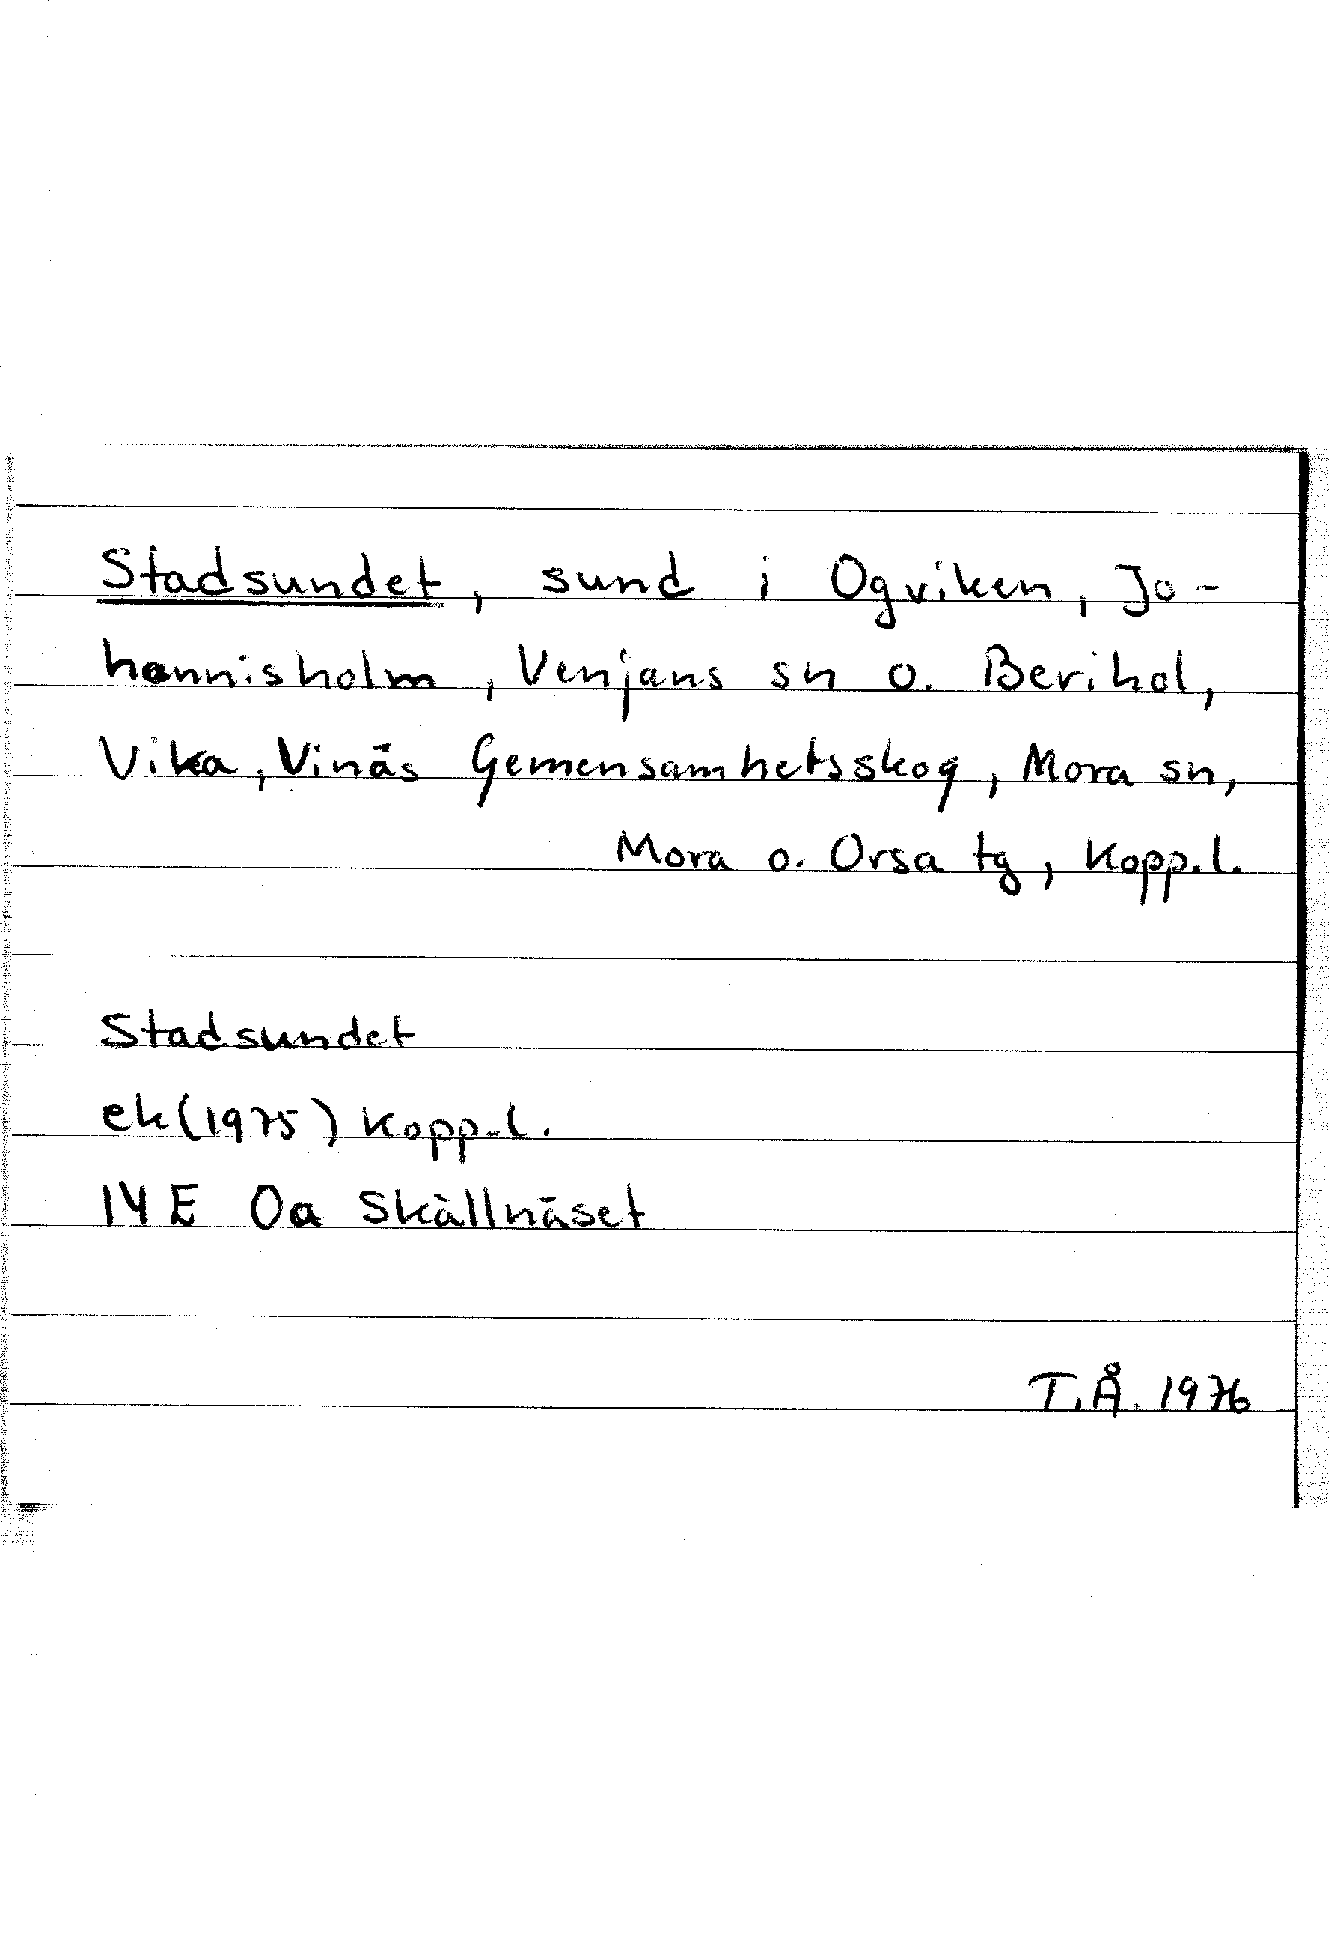 Stadsundet, sund i Ogviken, Jo-
hannisholm, Venjans sn o. Berihol,
Vika, Vinäs Gemensamhetsskog, Mora sn,
Mora o. Orsa tg, Kopp.l.
Stadsundet
ek (1975) Kopp.l.
14 E 0a Skällnäset
T.Å. 1976